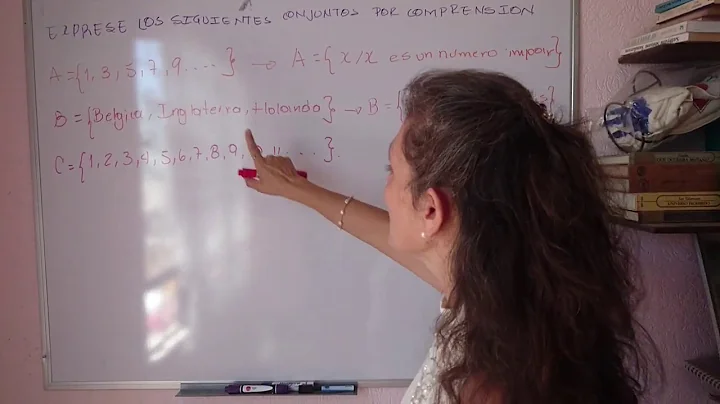 EXPRESE LOS SIGUIENTES CONJUNTOS POR COMPRENSION
A = {1, 3, 5, 7, 9 .... } → A = {x/x es un número impar}
B = {Belgica, Inglaterra, Holanda} → B = {
C = {1, 2, 3, 4, 5, 6, 7, 8, 9, 11 .... }.